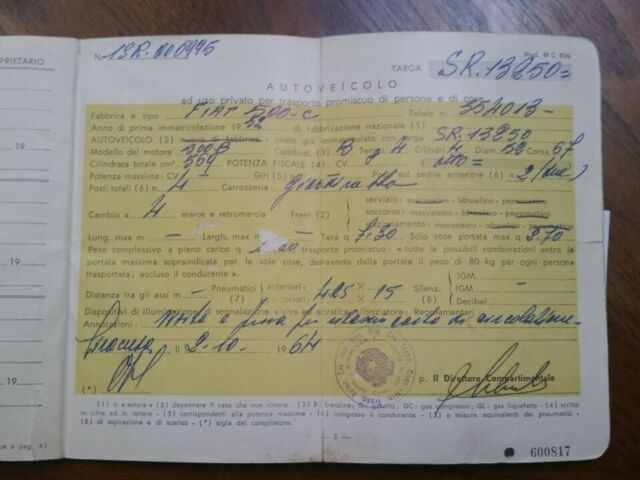 PRIETARIO
N. SR.000995
Mod. M C 806
TARGA SR.13250=
AUTOVEICOLO
ad uso privato per trasporto promiscuo di persone e di cose
Fabbrica e tipo FIAT 500-C Telaio n. 354013-
Anno di prima immatricolazione 1952 di fabbricazione nazionale (1)
AUTOVEICOLO (2) nuovo di fabbrica - usato già immatricolato con targa SR.13250
Modello del motore 500B Combus. (3) B Tempi 4 Cilindri 4 Diam. 52 Corsa 67
Cilindrata totale cm³ 569 POTENZA FISCALE (4): CV (otto=
Potenza massima: CV Giri (5) Posti sul sedile anteriore (6) n. 2 (due)
Posti totali (6) n. 4 Carrozzeria giardinetta
servizio: meccanico - idraulico - pneumatico
Cambio a 4 marce e retromarcia Freni (2) soccorso: meccanico - idraulico - pneumatico
stazionamento: meccanico - idraulico - pneumatico
Lung. max m — Largh. max m — Tara q 7,30 Solo cose portata max q 2,70
Peso complessivo a pieno carico q trasporto promiscuo: « tutte le possibili combinazioni entro la
portata massima sopraindicata per le sole cose, detraendo dalla portata il peso di 80 kg per ogni persona
trasportata; escluso il conducente ».
Distanza tra gli assi m — Pneumatici (7) anteriori: 425 x 15 Silenz. (8) IGM —
posteriori: x IGM
Decibel
Dispositivi di illuminazione di segnalazione visiva ed acustica e silenziatore: Regolamentari
Annotazioni: carta di circolazione
Siracusa, lì 2-10- 1964
p. Il Direttore Compartimentale
(*)
(1) o « estera » (2) depennare il caso che non ricorre - (3) B: benzina; G: gasolio; GC: gas compresso; GL: gas liquefatto - (4) scritto
in cifre ed in lettere - (5) corrispondenti alla potenza massima - (6) compreso il conducente - (7) o misure equivalenti dei pneumatici -
(8) di aspirazione e di scarico - (*) sigla del compilatore.
— 3 —
600817
19
19
19
ue a pag. 4)